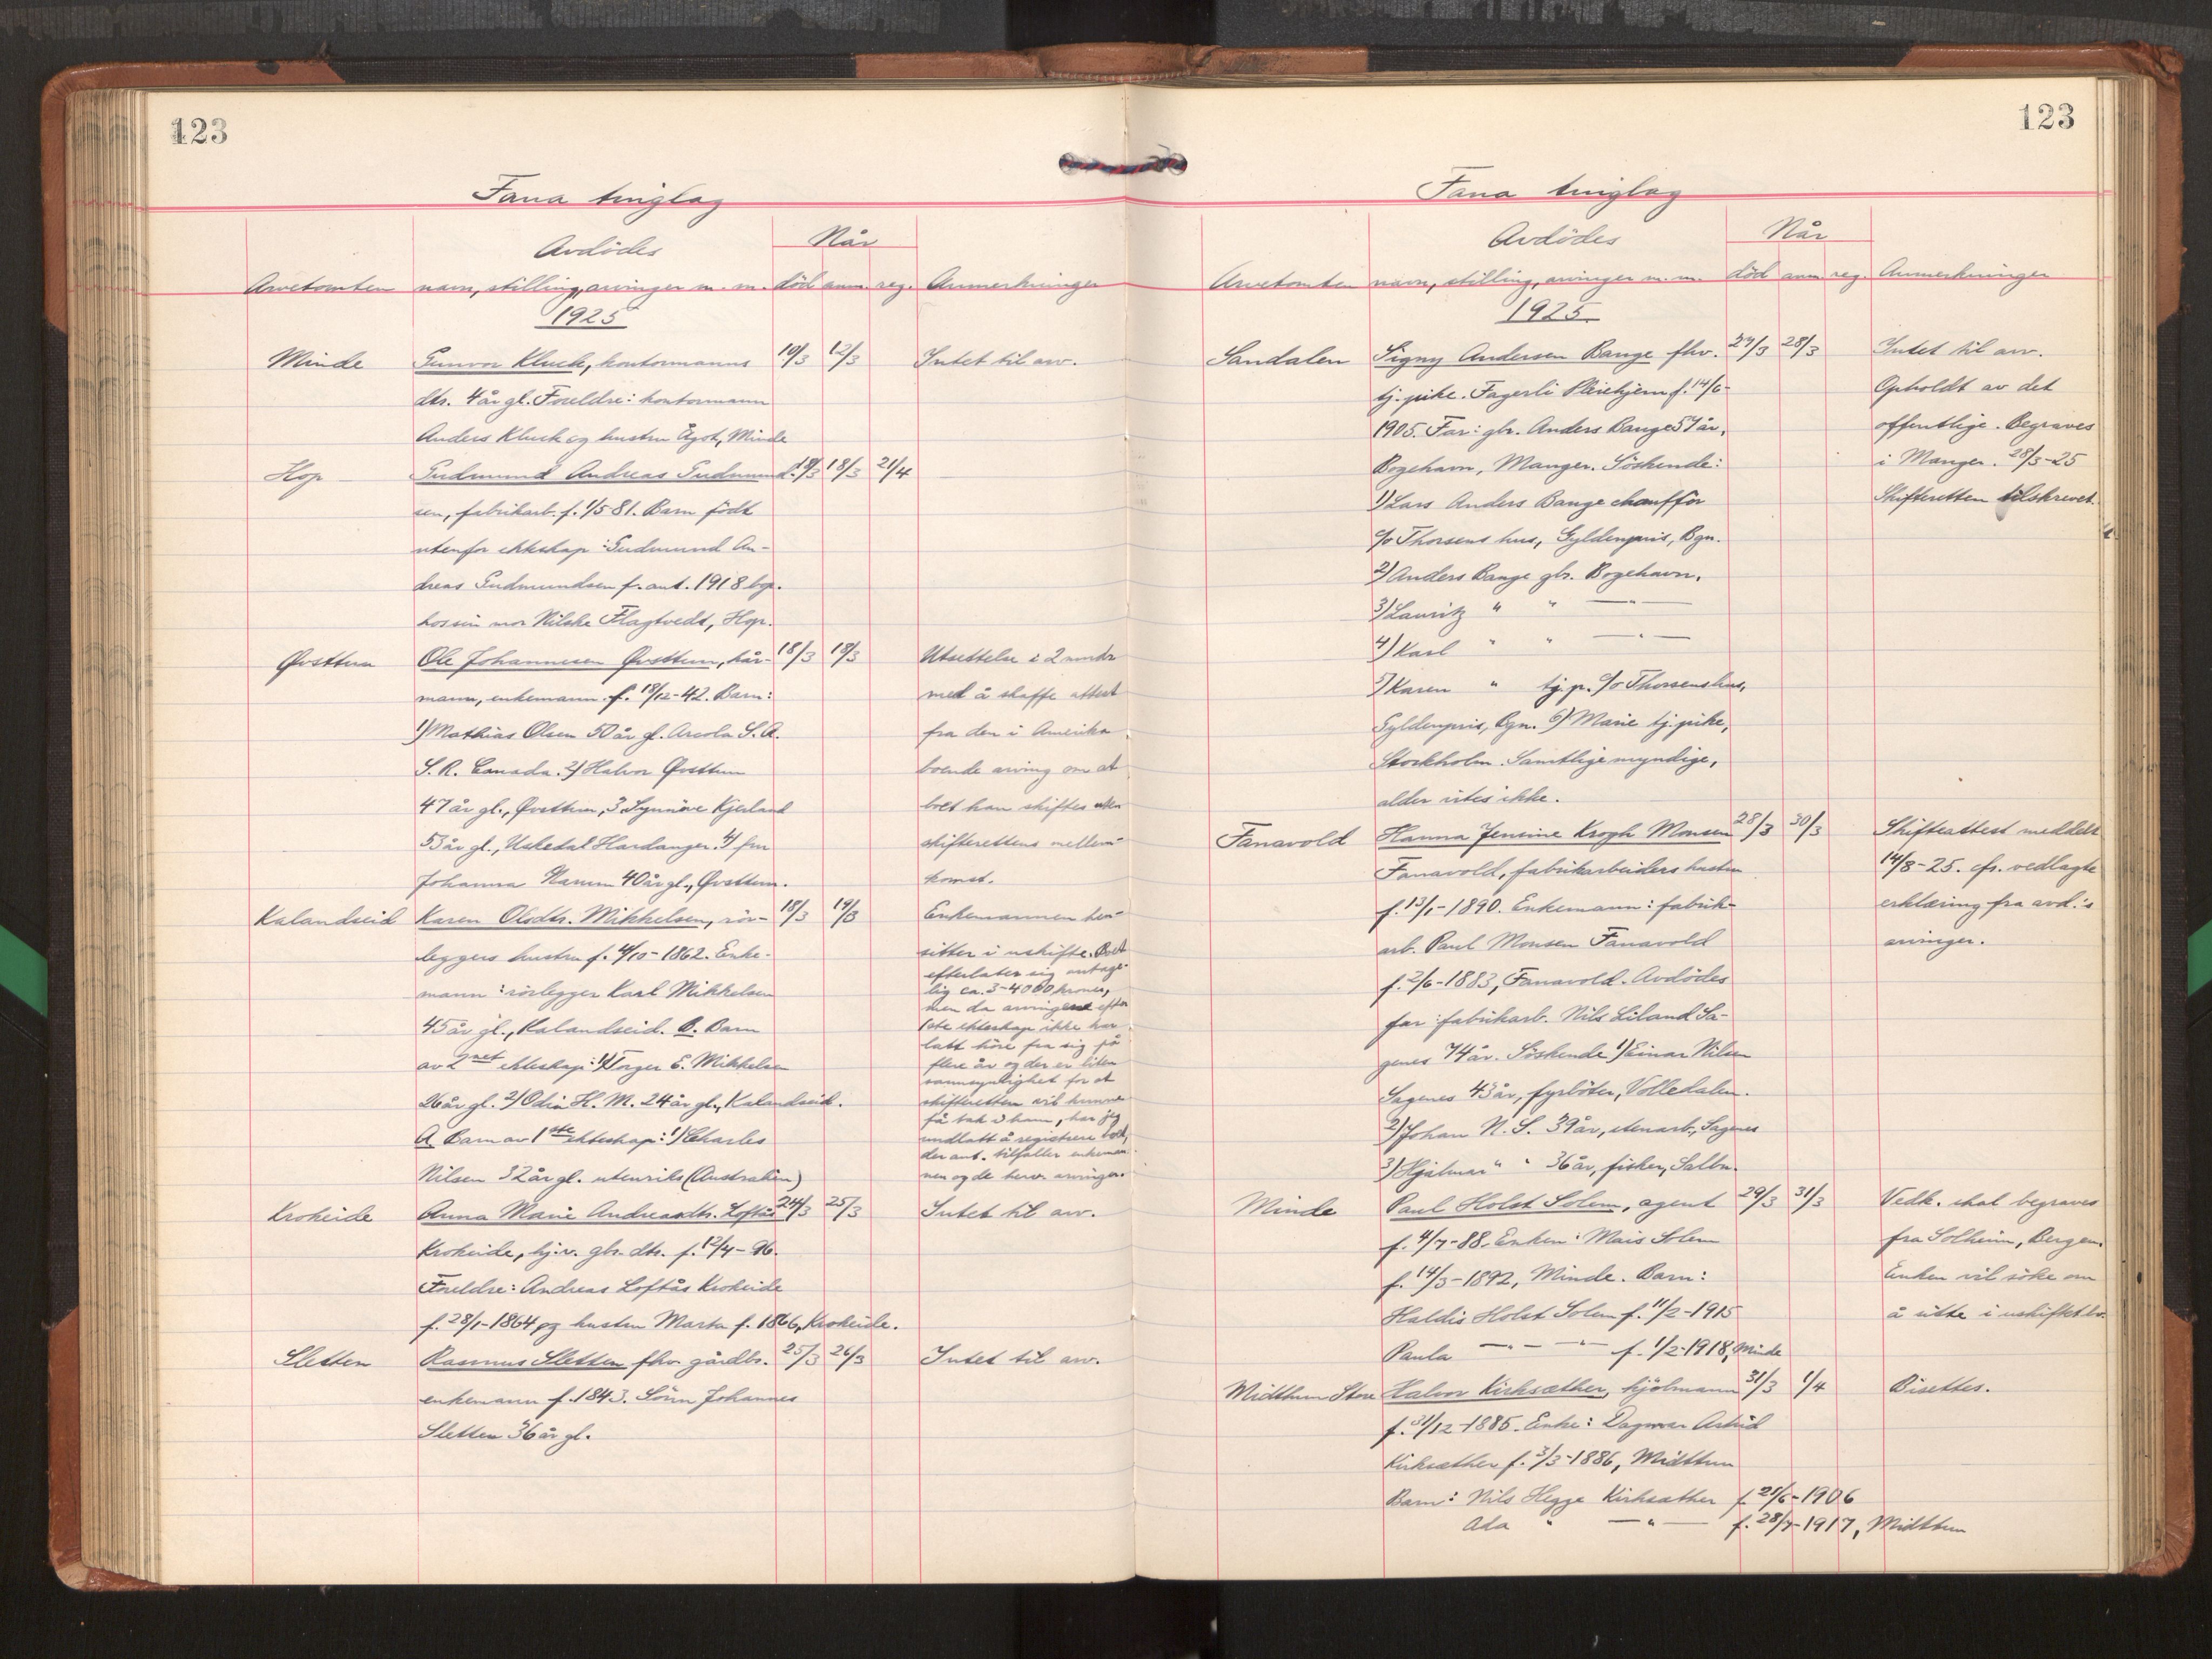 123
Fana tinglag
Avdödes
Når
Arvetomten navn, stilling, arvinger m. m. död anm. reg. Anmerkninger
1925
Minde Gunvor Kluck, kontormanns 10/3 12/3 Intet til arv.
dtr. 4 år gl. Foreldre: kontormann
Anders Kluck og hustru Ågot, Minde
Hop Gudmund Andreas Gudmund- 18/3 21/4
sen, fabrikarb. f. 1/5 81. Barn födt
utenfor ekteskap: Gudmund An-
dreas Gudmundsen f. ant. 1918 bop.
hos sin mor Nilske Flagtvedt, Hop.
Øvsttun Ole Johannesen Øvsttun, kår- 18/3 19/3 Utsettelse i 2 mndr
mann, enkemann f. 18/12-42. Barn: med å skaffe attest
1) Mathias Olsen 50 år gl. Arcola S. A. fra den i Amerika
S. R. Canada. 2) Halvor Øvsttun boende arving om at
47 år gl., Øvsttun, 3 Synnöve Kjerland boet kan skiftes uten
53 år gl., Uskedal Hardanger. 4) fru skifterettens mellem-
Johanna Hamm 40 år gl., Øvsttun. komst.
Kalandseid Karen Olsdtr. Mikkelsen, rör- 18/3 19/3 Enkemannen hen-
leggers hustru f. 4/10-1862. Enke- sitter i uskifte. Boet
efterlater sig antage-
mann: rörlegger Karl Mikkelsen lig ca. 3-4000 kroner,
men da arvingene efter
45 år gl., Kalandseid. B. Barn 1ste ekteskap ikke har
latt höre fra sig på
av 2net ekteskap: 1) Torger E. Mikkelsen flere år og der er liten
sannsynlighet for at
26 år gl. 2) Odin H. M. 24 år gl., Kalandseid. skifteretten vil kunne
få tak i ham, har jeg
A Barn av 1ste ekteskap: 1) Charles undlatt å registrere boet,
der ant. tilfaller enkeman-
Nilsen 32 år gl. utenriks (Australien) nen og de herv. arvinger.
Krokeide Anna Marie Andreasdtr. Loftås 24/3 25/3 Intet til arv.
Krokeide, hj.v. gbr. dtr. f. 12/4-96.
Foreldre: Andreas Loftås Krokeide
f. 28/1-1864 og hustru Marta f. 1866, Krokeide.
Sletten Rasmus Sletten fhv. gårdbr. 25/3 26/3 Intet til arv.
enkemann f. 1843. Sönn Johannes
Sletten 36 år gl.
123
Fana tinglag
Avdödes
Når
Arvetomten navn, stilling, arvinger m. m. död anm. reg. Anmerkninger
1925
Sandalen Signy Andersen Bange fhv. 27/3 28/3 Intet til arv.
tj. pike. Fagerli Pleiehjem f. 14/6- Opholdt av det
1905. Far: gbr. Anders Bange 57 år, offentlige. Begraves
Bogehavn, Manger. Söskende: i Manger. 28/3-25
1) Lars Anders Bange chaufför Skifteretten tilskrevet.
c/o Thorsens hus, Gyldenpris, Bgn.
2) Anders Bange gbr. Bogehavn,
3) Lauritz " " — " —
4) Karl " " — " —
5) Karen " tj. p. c/o Thorsens hus,
Gyldenpris, Bgn. 6) Marie tj. pike,
Stockholm. Samtlige myndige,
alder vites ikke.
Fanavold Hanna Jensine Krogh Monsen 28/3 30/3 Skifteattest meddelt
Fanavold, fabrikarbeiders hustru 14/8-25. cfr. vedlagte
f. 13/1-1890. Enkemann: fabrik- erklæring fra avd.'s
arb. Paul Monsen Fanavold arvinger.
f. 2/6-1883, Fanavold. Avdödes
far: fabrikarb. Nils Liland Sa-
genes 74 år. Söskende 1) Einar Nilsen
Sagenes 43 år, fyrböter, Volledalen.
2) Johan N. S. 39 år, stenarb., Sagenes
3) Hjalmar " " 36 år, fisker, Salbu.
Minde Paul Holst Solem, agent 29/3 31/3 Vedk. skal begraves
f. 4/7-88. Enken: Mais Solem fra Solheim, Bergen.
f. 14/3-1892, Minde. Barn: Enken vil söke om
Haldis Holst Solem f. 11/2-1915 å sitte i uskiftet bo.
Paula — " — " — f. 1/2-1918, Minde
Midttun Store Halvor Kirksæther, hjölmann 31/3 1/4 Bisettes.
f. 31/12-1885. Enke: Dagmar Astrid
Kirksæther f. 3/3-1886, Midttun
Barn: Nils Hegge Kirksæther f. 21/6-1906
Ada " — " — f. 28/7-1917, Midttun